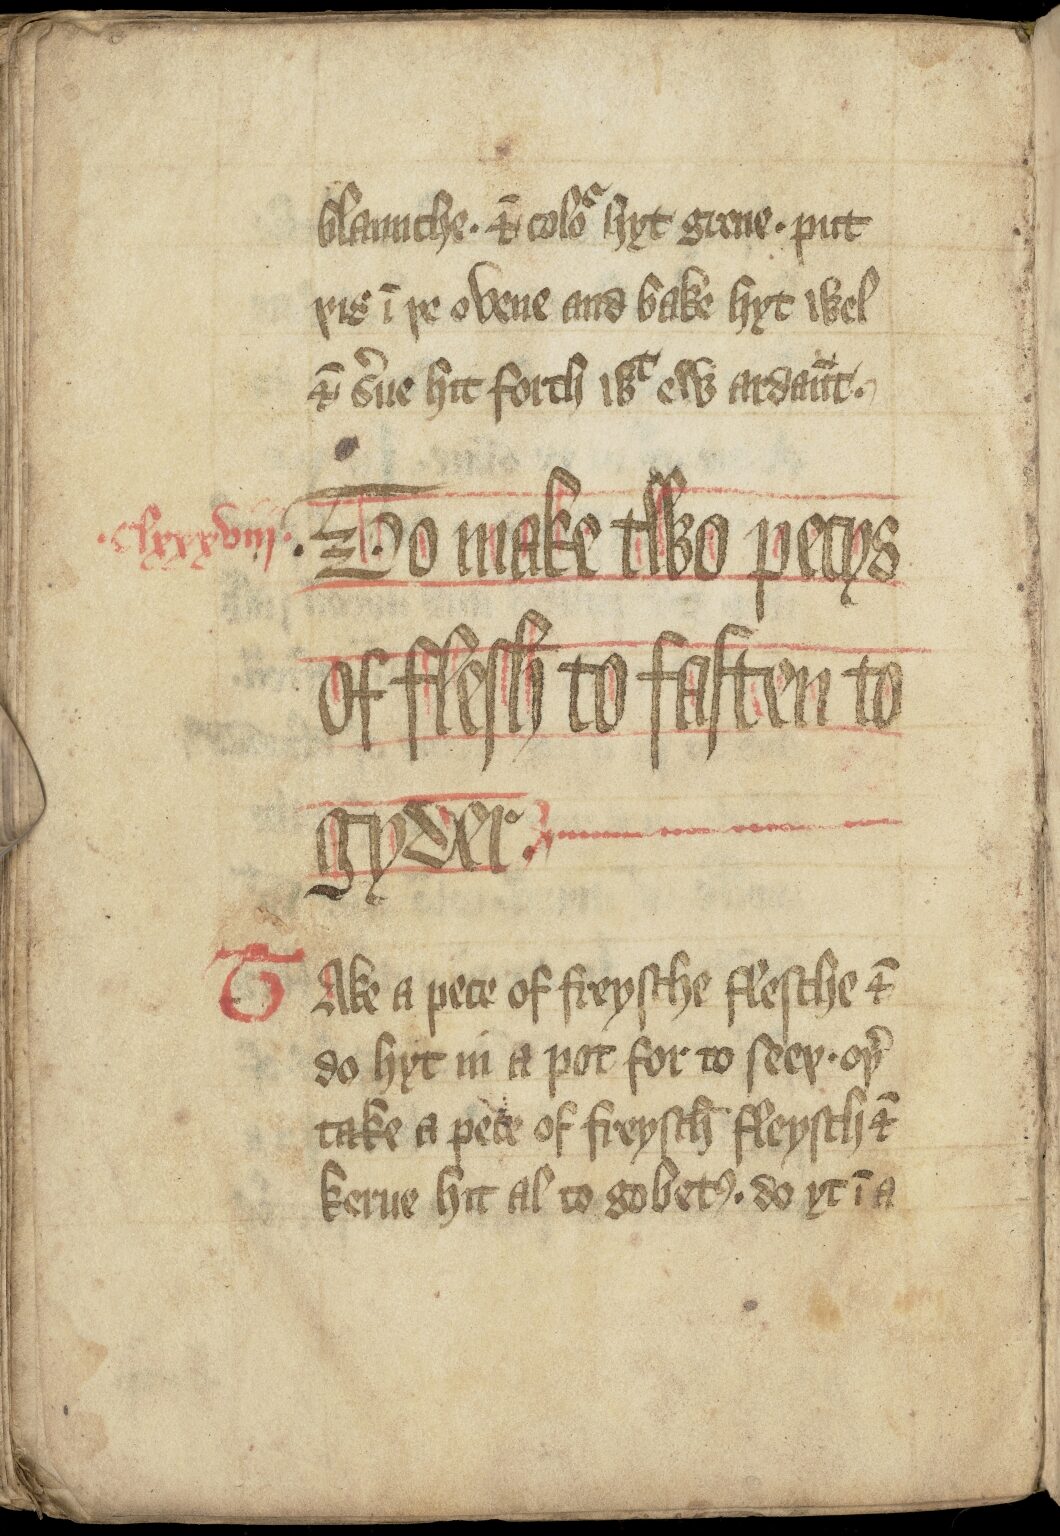 blaunche. & coloᵃ hyt grene. put
þis ī þe ovene and bake hyt wel
& s̄ue hit forth wᵗ ew ardaūt.
.clxxxviij. .To make two pecys
of flesh to fasten to
gyder.
TAke a pece of freysche flesche &
do hyt in a pot for to seeþ. oþ̄
take a pece of freysch̄ fleysch &
kerue hit al to gobetꝭ. do yt ī a